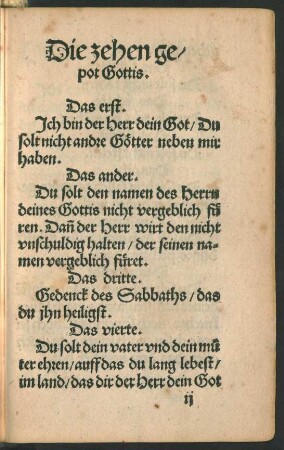 Die zehen ge/
pot Gottis.
Das erst.
Ich bin der Herr dein Got/ Du
solt nicht andre Götter neben mir
haben.
Das ander.
Du solt den namen des Herrn
deines Gottis nicht vergeblich fü
ren. Dañ der Herr wirt den nicht
vnschuldig halten/ der seinen na-
men vergeblich füret.
Das dritte.
Gedenck des Sabbaths/ das
du jhn heiligst.
Das vierte.
Du solt dein vater vnd dein mů
ter ehren/ auff das du lang lebest/
im land/ das dir der Herr dein Got
ij